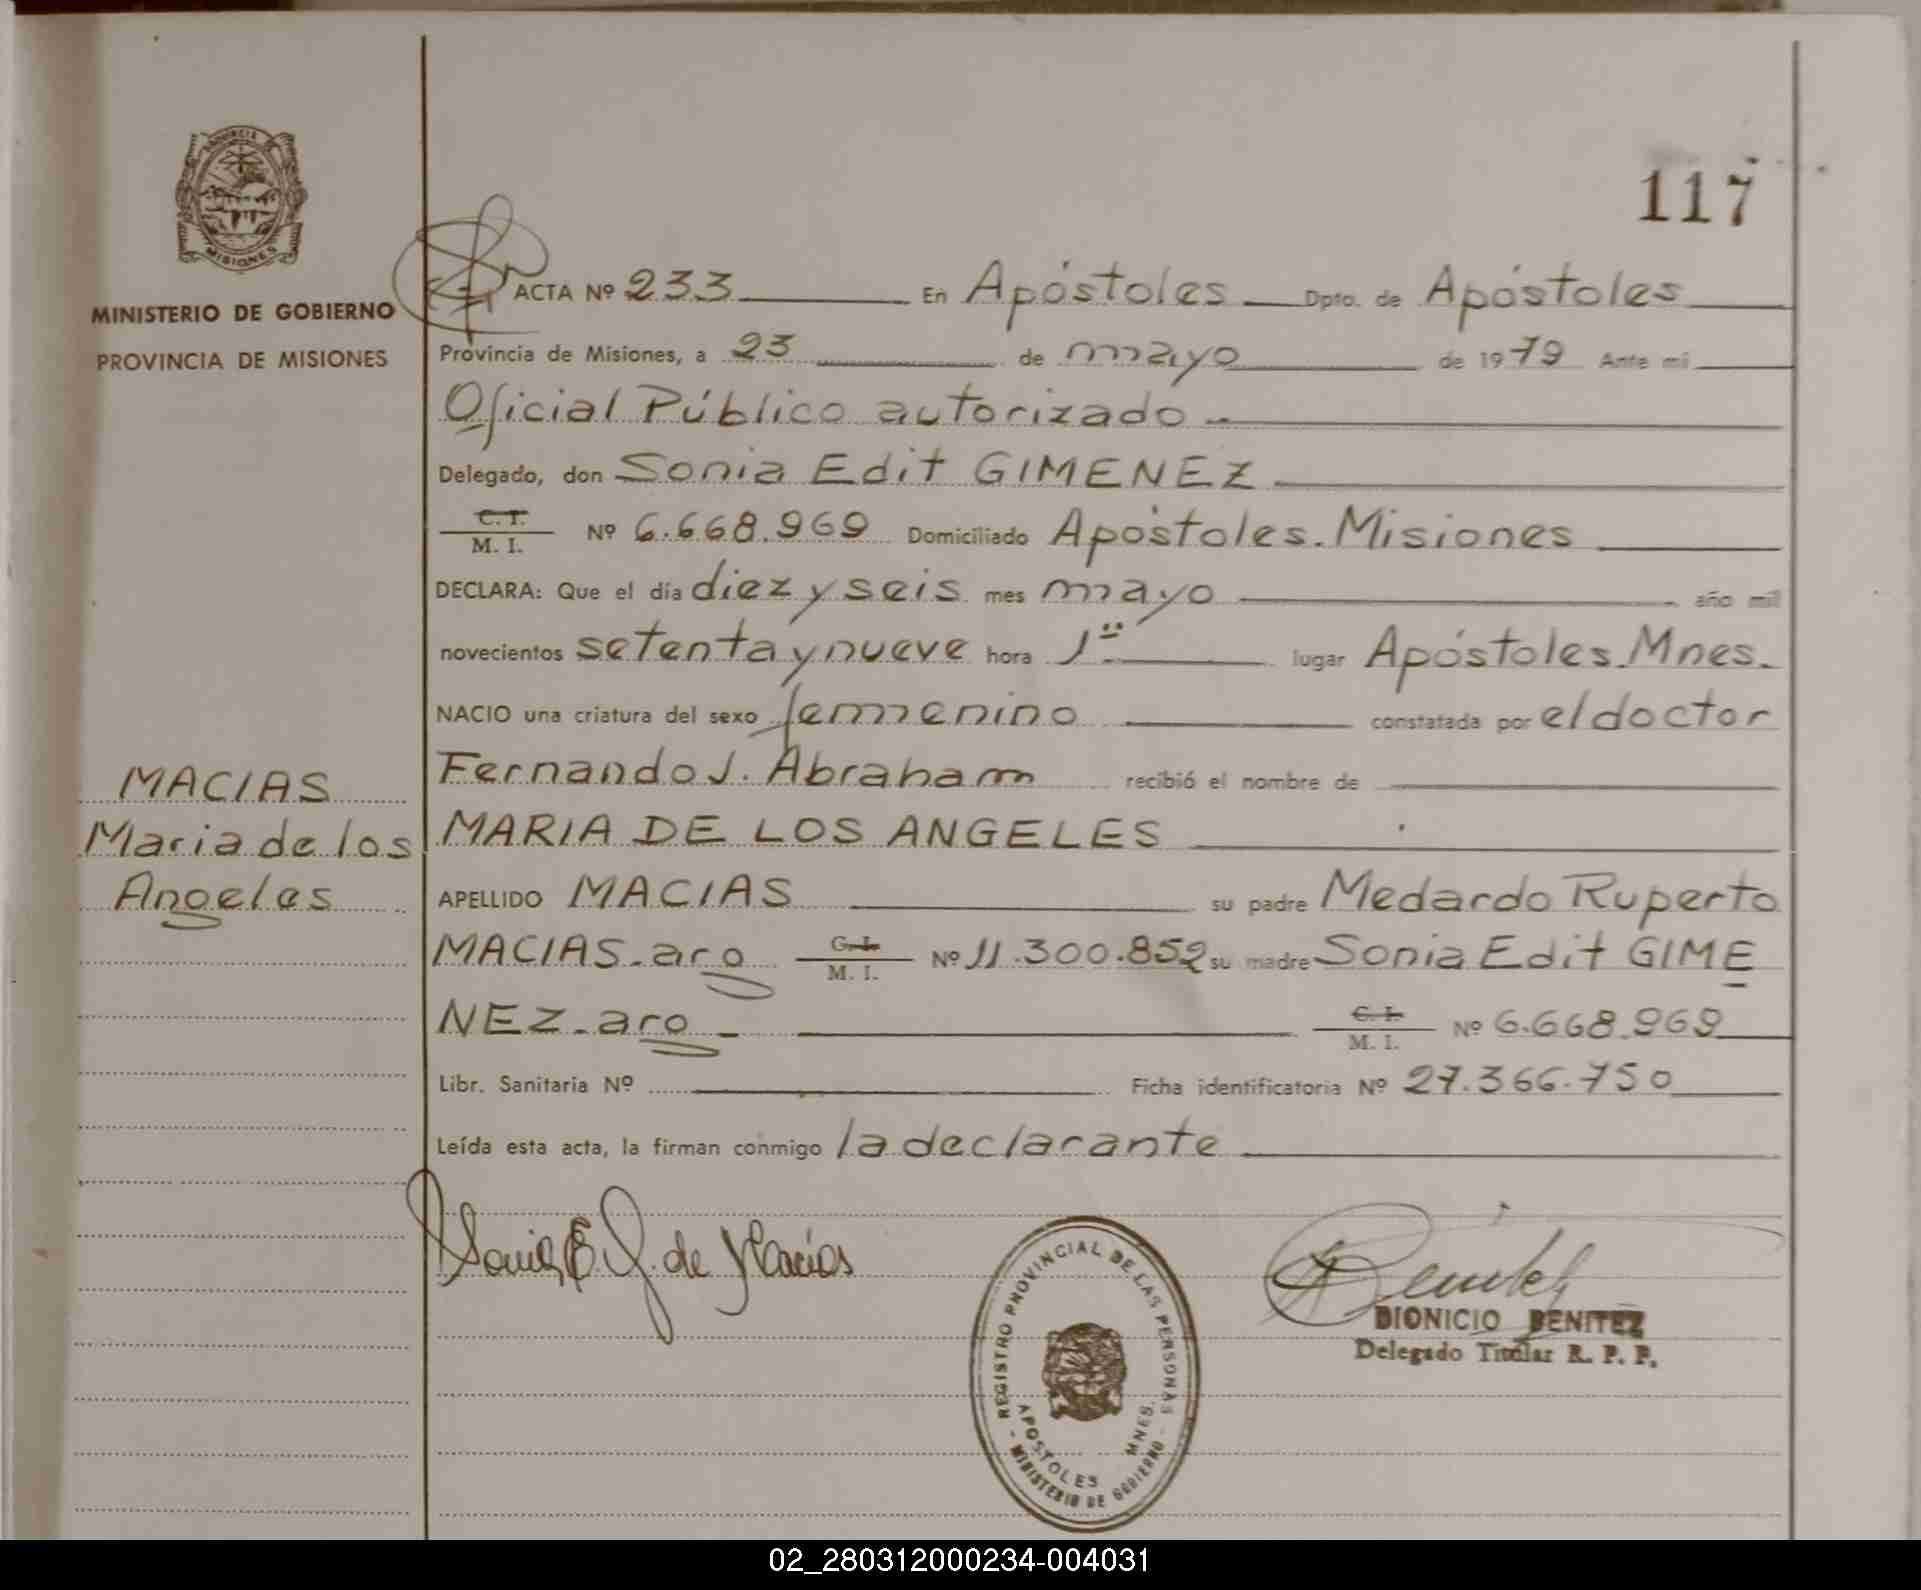 117
PROVINCIA
MISIONES
MINISTERIO DE GOBIERNO
PROVINCIA DE MISIONES
ACTA Nº 233 En Apóstoles Dpto. de Apóstoles
Provincia de Misiones, a 23 de mayo de 1979 Ante mi
Oficial Público autorizado
Delegado, don Sonia Edit GIMENEZ
C. I.
M. I. Nº 6.668.969 Domiciliado Apóstoles. Misiones
DECLARA: Que el día diez y seis mes mayo año mil
novecientos setenta y nueve hora 1 lugar Apóstoles. Mnes.
NACIO una criatura del sexo femenino constatada por el doctor
Fernando J. Abraham recibió el nombre de
MARIA DE LOS ANGELES
APELLIDO MACIAS su padre Medardo Ruperto
MACIAS-aro C. I. M. I. Nº 11.300.852 su madre Sonia Edit GIME
NEZ-aro C. I. M. I. Nº 6.668.969
Libr. Sanitaria Nº Ficha identificatoria Nº 27.366.750
Leída esta acta, la firman conmigo la declarante
MACIAS
Maria de los
Angeles
Sonia E. G. de Macías
REGISTRO PROVINCIAL DE LAS PERSONAS
APOSTOLES MNES.
- MINISTERIO DE GOBIERNO -
Benitez
DIONICIO BENITEZ
Delegado Titular R. P. P.
02_280312000234-004031